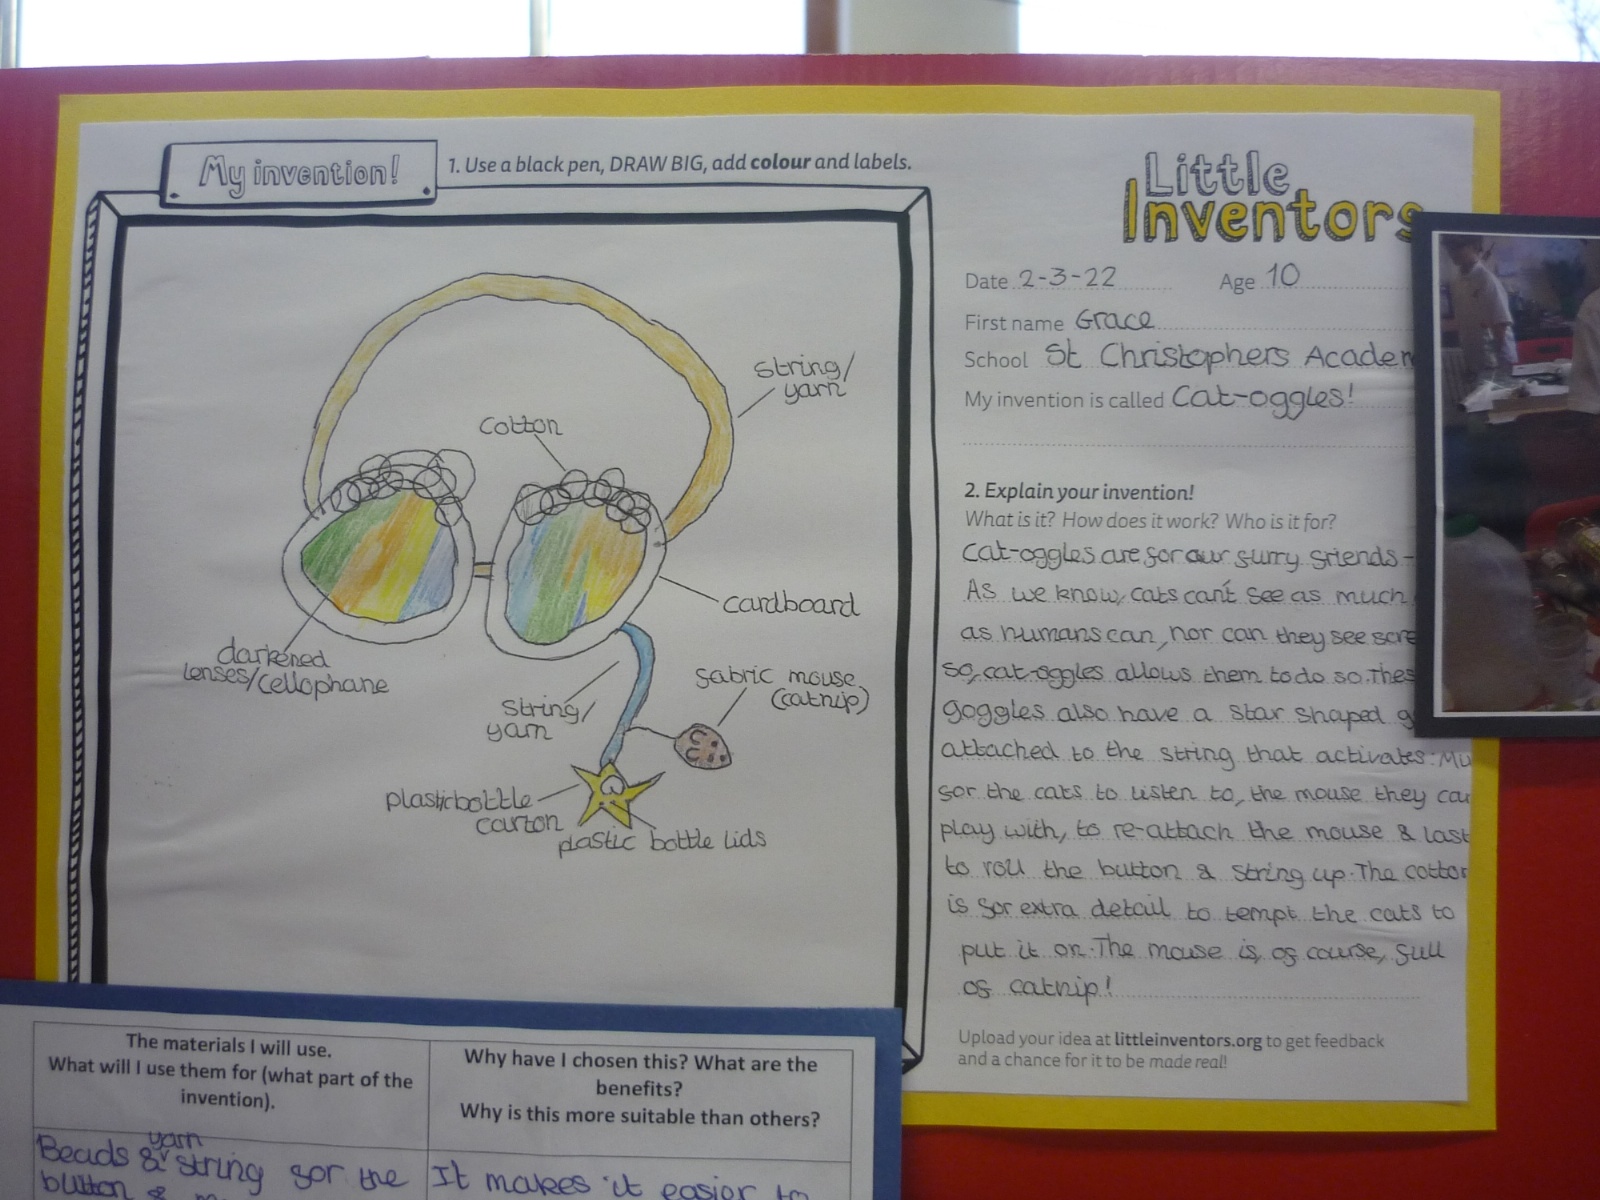 My invention!
1. Use a black pen, DRAW BIG, add colour and labels.
string/
yarn
cotton
cardboard
darkened
lenses/cellophane
string/
yarn
fabric mouse
(catnip)
plasticbottle
carton
plastic bottle lids
Little
Inventors
Date 2-3-22 Age 10
First name Grace
School St Christophers
My invention is called Cat-oggles!
2. Explain your invention!
What is it? How does it work? Who is it for?
Cat-oggles are for our furry friends -
As we know, cats can't see as much
as humans can, nor can they see
so, cat-oggles allows them to do so.
goggles also have a star shaped
attached to the string that activates:
for the cats to listen to, the mouse they
play with, to re-attach the mouse & last
to roll the button & string up. The
is for extra detail to tempt the cats to
put it on. The mouse is, of course, full
of catnip!
Upload your idea at littleinventors.org to get feedback
and a chance for it to be made real!
The materials I will use.
What will I use them for (what part of the
invention).
Why have I chosen this? What are the
benefits?
Why is this more suitable than others?
Beads & yarn string for the
button &
It makes it easier to